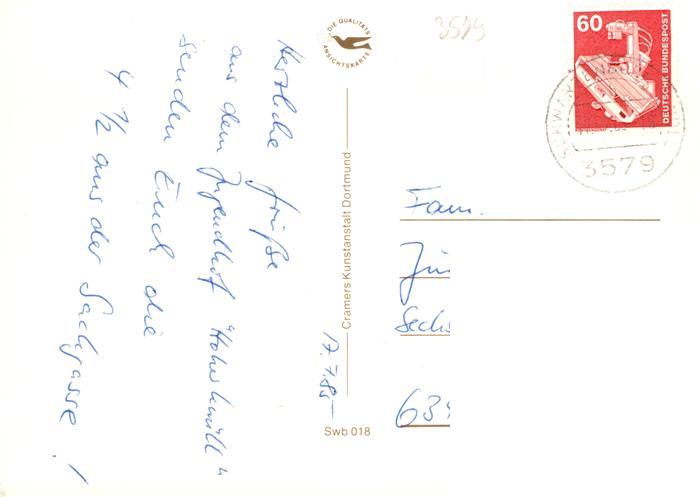 Herzliche Grüße
aus dem Jugendhof "
senden Euch die
4 1/2 aus der Sackgasse!
17.7.85
DIE QUALITÄTS
ANSICHTSKARTE
Cramers Kunstanstalt Dortmund
Swb 018
3579
60
DEUTSCHE BUNDESPOST
3579
Fam.
Jü
Sech
639